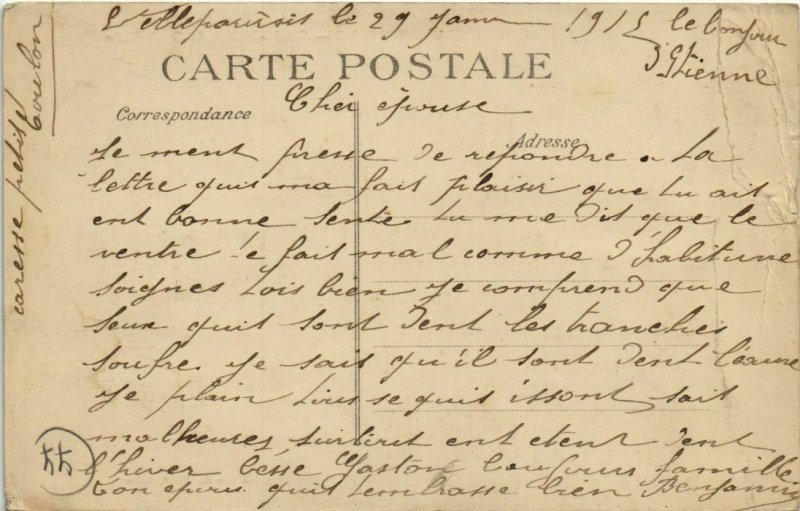 Velleparisis le 29 janv 1915 le bonjour
d'Etienne
CARTE POSTALE
Cher épouse
Correspondance
Adresse
Je ment presse de repondre a ta
lettre quis ma fait plaisir que tu ait
ent bonne sente tu me dis que le
ventre te fait mal comme d'habitune
soignes tois bien je comprend que
seux quis sont dent les tranches
soufre je sais qu'il sont dent l'eaux
je plain tous se quis issont sait
malheures surtirt ent etent dent
l'hiver bésse Gaston toujours famille
ton epous quis t'embrasse bien Benjamin
caresse petite
Loulon
55